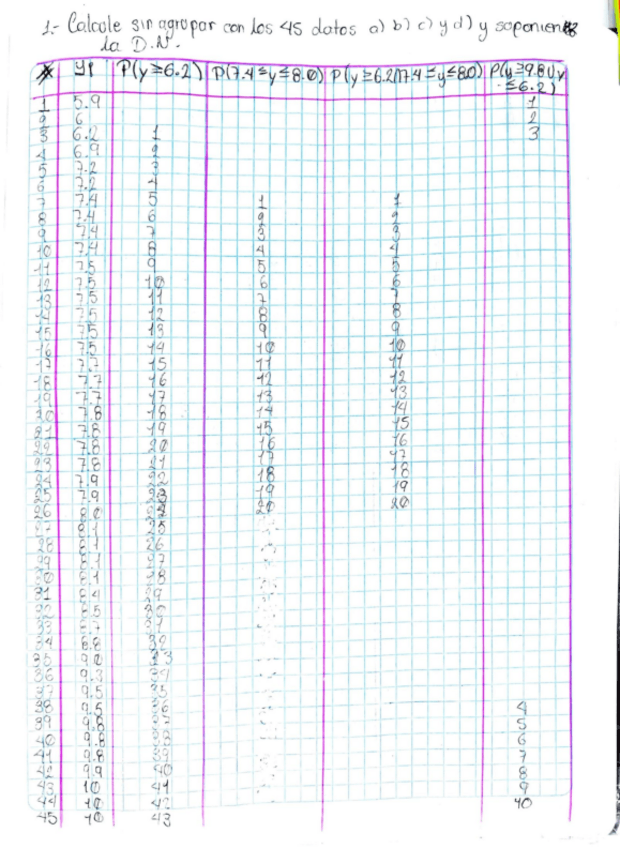 1.- Calcule sin agrupar con los 45 datos a) b) c) y d) y soponiendo
la D.N.
# Y1 P(y≥6.2) P(7.4≤y≤8.0) P(y≥6.2∩7.4≤y≤8.0) P(y≥9.8∪y
≤6.2)
1 5.9 1
2 6 2
3 6.2 1 3
4 6.9 2
5 7.2 3
6 7.2 4
7 7.4 5 1 1
8 7.4 6 2 2
9 7.4 7 3 3
10 7.4 8 4 4
11 7.5 9 5 5
12 7.5 10 6 6
13 7.5 11 7 7
14 7.5 12 8 8
15 7.5 13 9 9
16 7.5 14 10 10
17 7.7 15 11 11
18 7.7 16 12 12
19 7.7 17 13 13
20 7.8 18 14 14
21 7.8 19 15 15
22 7.8 20 16 16
23 7.8 21 17 17
24 7.9 22 18 18
25 7.9 23 19 19
26 8.0 24 20 20
27 8.1 25
28 8.1 26
29 8.1 27
30 8.1 28
31 8.4 29
32 8.5 30
33 8.7 31
34 8.8 32
35 9.0 33
36 9.3 34
37 9.5 35
38 9.5 36 4
39 9.8 37 5
40 9.8 38 6
41 9.8 39 7
42 9.9 40 8
43 10 41 9
44 10 42 10
45 10 43